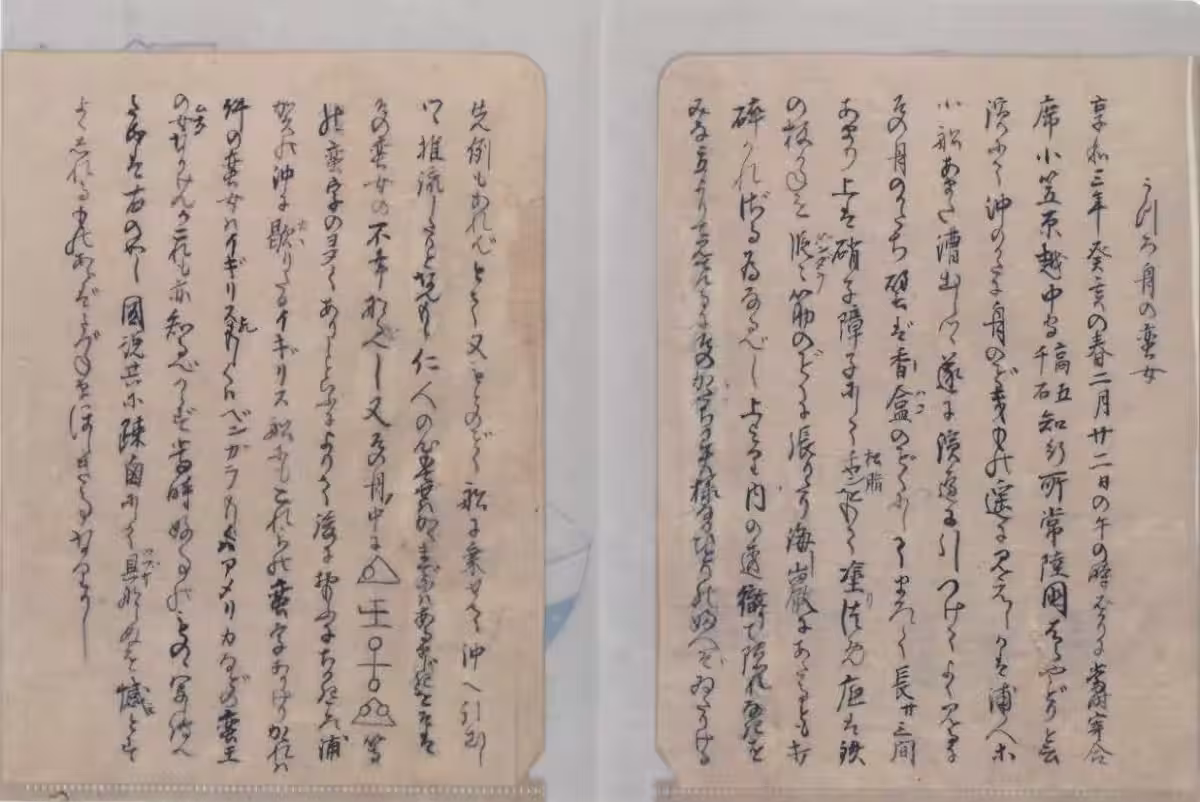 うつろ舟の蛮女
享和三年癸亥の春二月廿二日の午の時ばかりに當時寄合
席小笠原越中守高五千石知行所常陸國はらやどりと云
濱にて沖のかたに舟のごときもの遥に見えしかば浦人ホ
小船あまた漕出しつゝ遂に濱邊に引つけてよく見るに
その舟のかたち譬ば香盒のごとくにしてまろく長サ三間
あまり上は硝子障子にしてチヤン松脂をもて塗りつめ底は鉄
の板がねを段々筋のごとくに張たり海巖にあたるとも打
碎かれざる為なるべし上より内の透徹りて隠れなきを
みな立よりて見てけるにそのかたち異様なるひとりの婦人ぞゐたりける
先例もあればとて又もとのごとく船に乗せて沖へ引出し
つゝ推流したりとなんもし仁人の心もてせばかくまでにはあるまじきをそは
その蛮女の不幸なるべし又その舟の中に 等
の蛮字の多くありしといふによりて後におもふにちかきころ浦
賀の沖に歇りたるイギリス船にもこれらの蛮字ありけりかゝれば
件の蛮女はイギリスかもしくはベンガラもしくはアメリカなどの蛮王
の女なりけんかこれも亦知るべからず當時好事のものの寫し傳へ
たるは右の如し圖説共に疎鹵にして具ならぬを憾とす
よくしれるものあらばたづねまほしき事なりかし